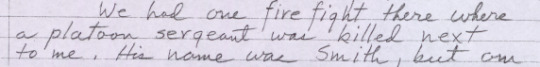 We had one fire fight there where
a platoon sergeant was killed next
to me. His name was Smith, but om